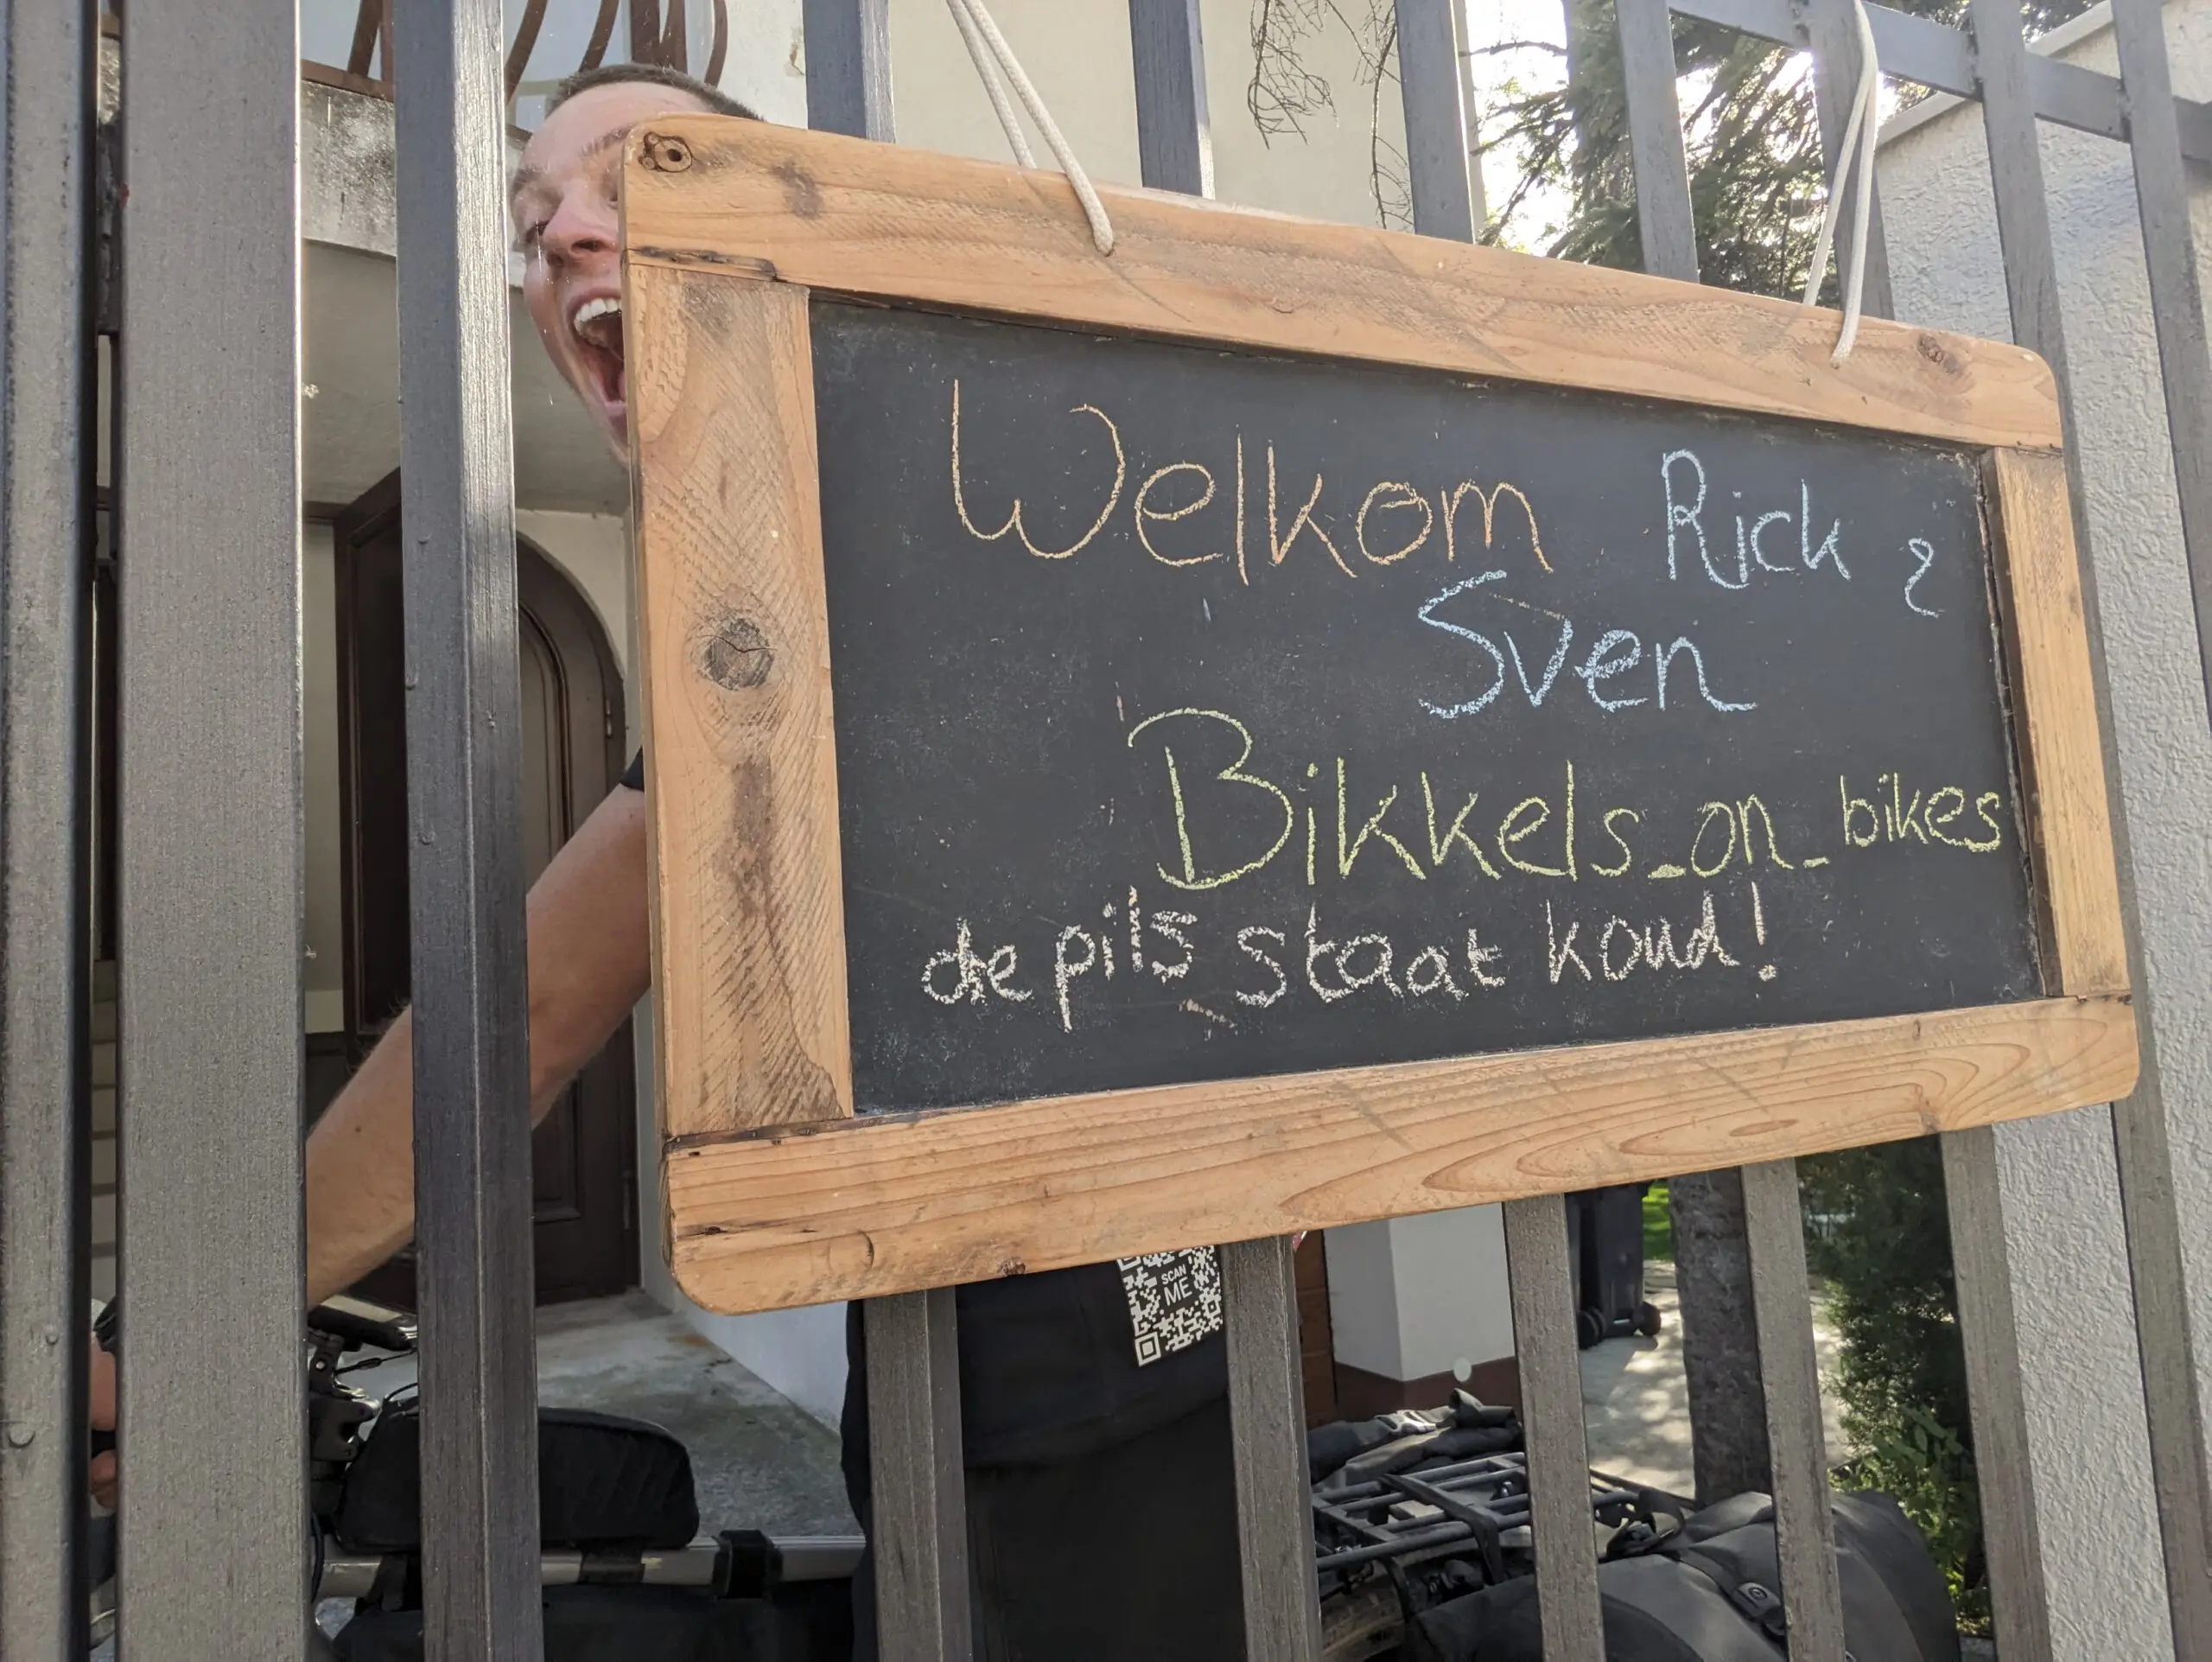 Welkom Rick &
Sven
Bikkels_on_bikes
de pils staat koud!
SCAN
ME